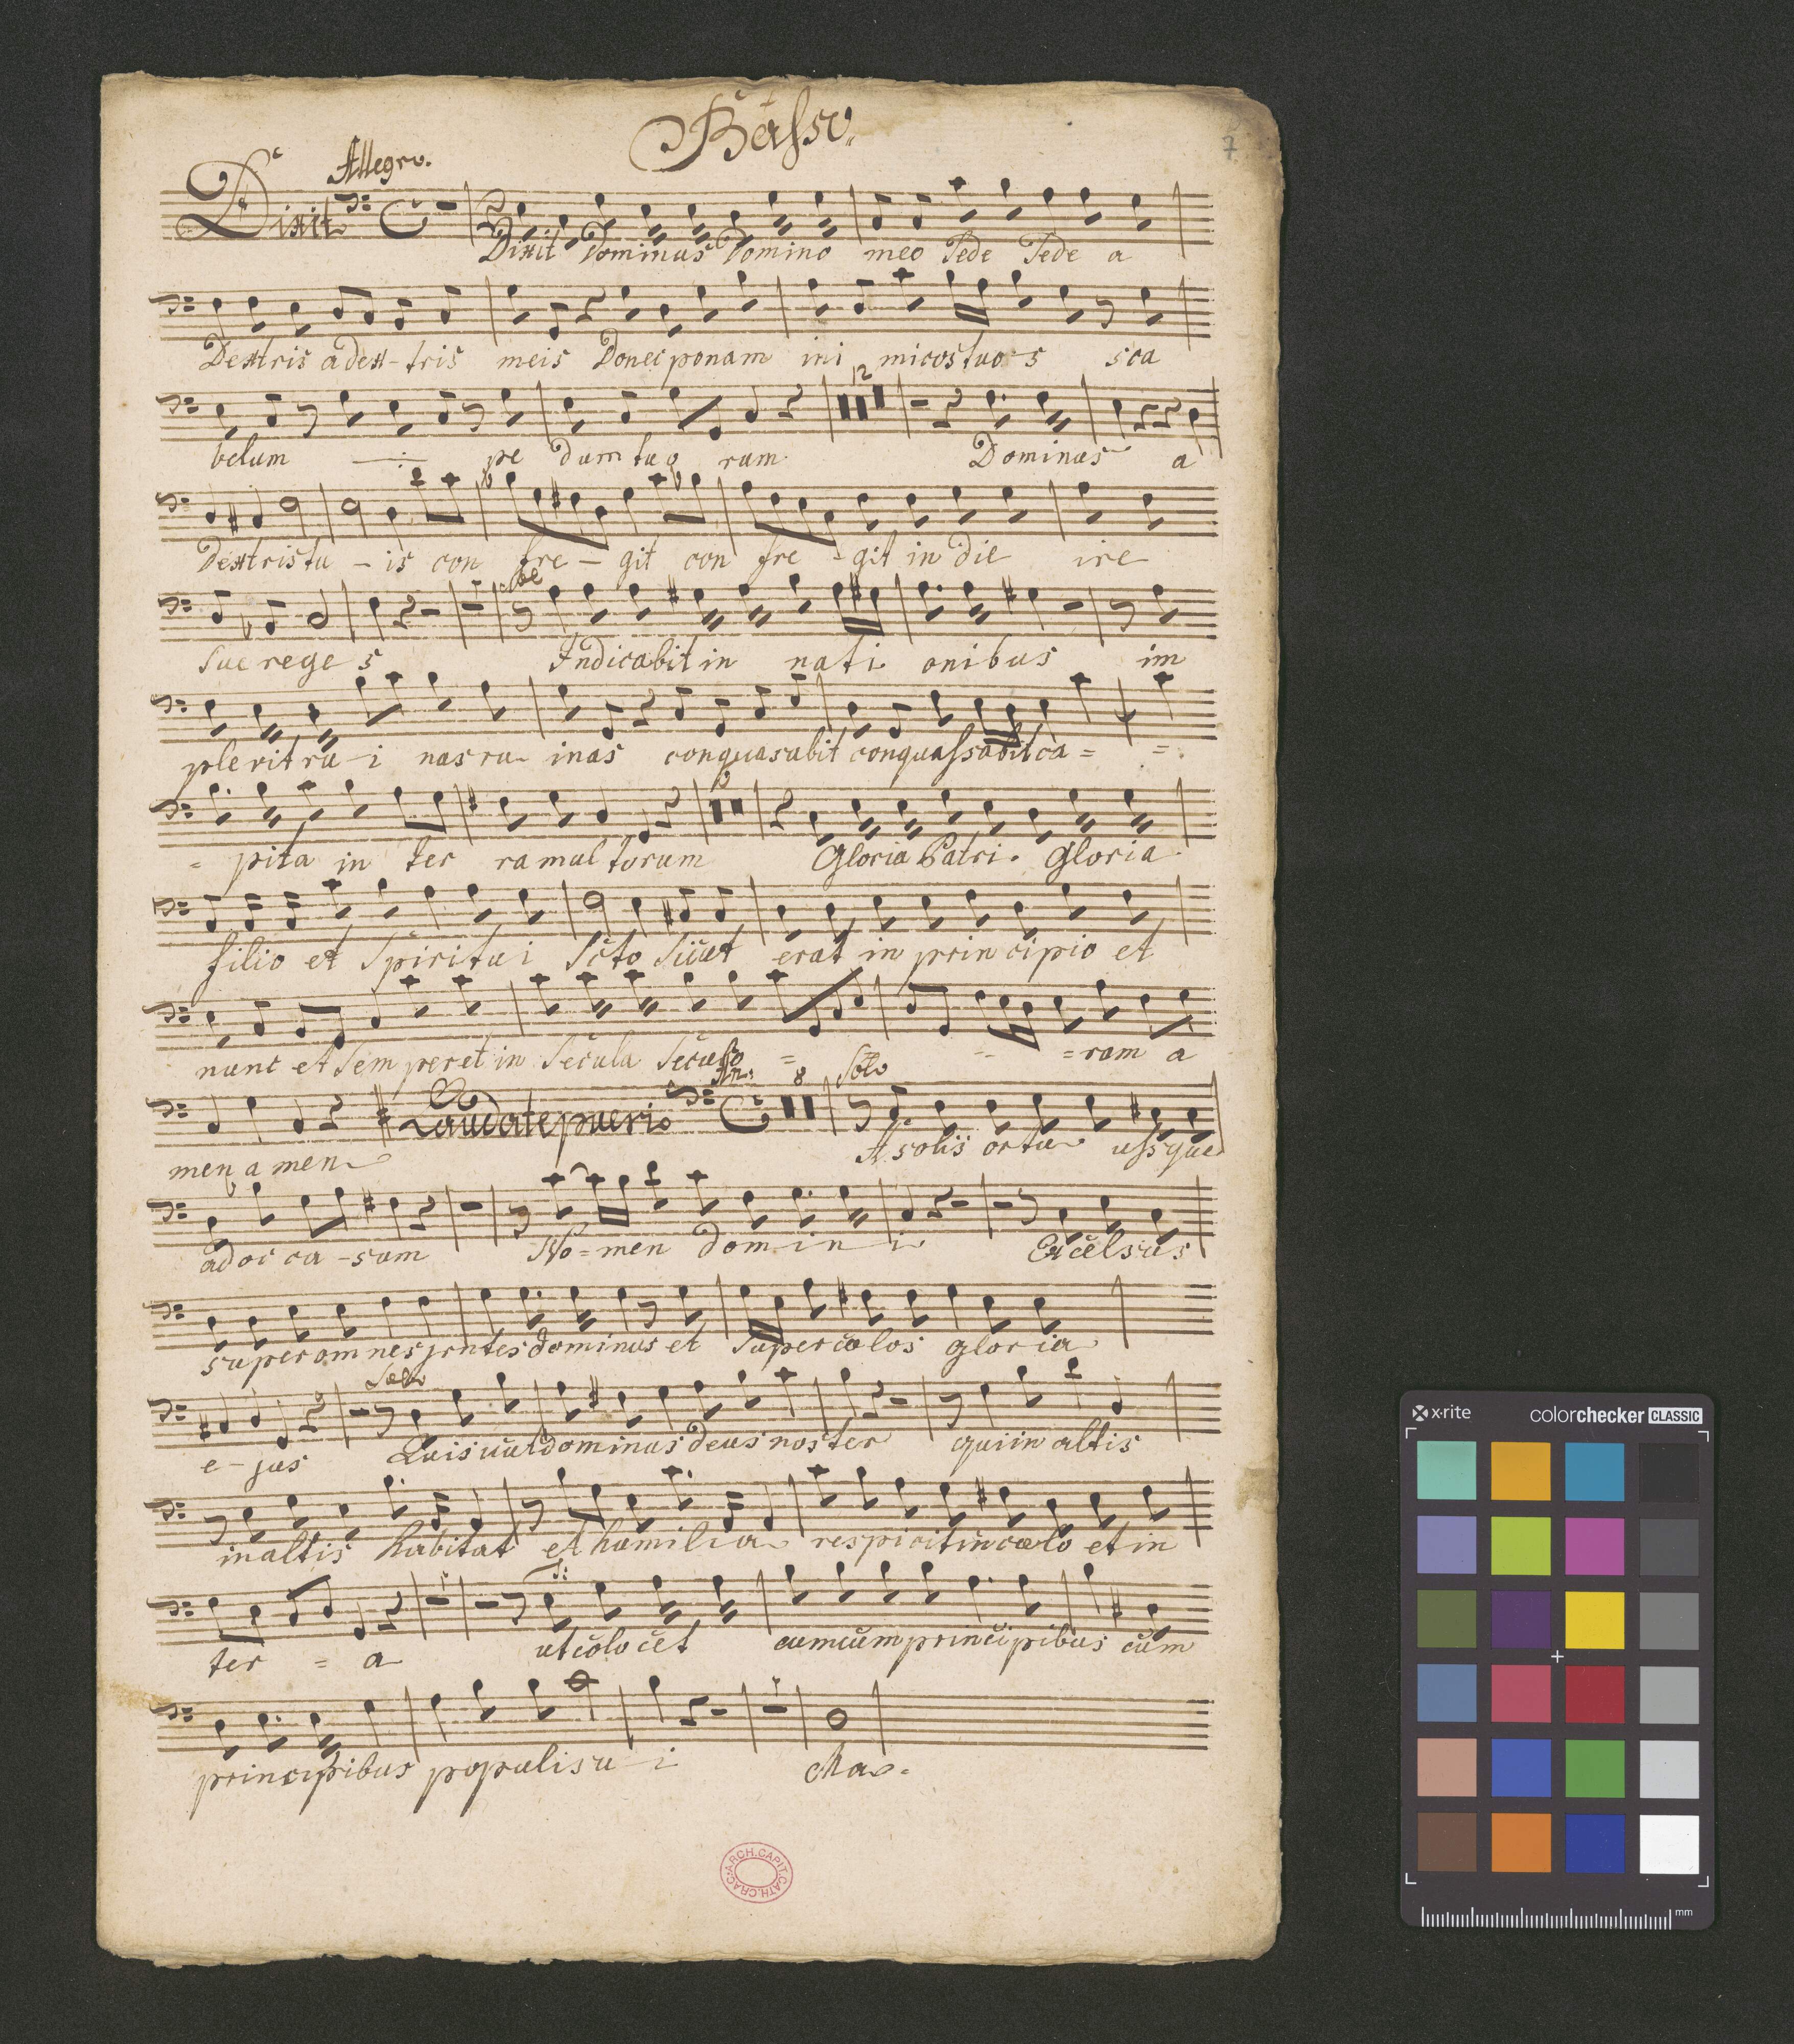 Basso.
7
Allegro.
Dixit
Dixit Dominus Domino meo Sede Sede a
Dextris a dex-tris meis Donec ponam ini micos tuo-s sca
belum pe dum tuo rum. Dominus a
12
Dextris tu - is con fre - git con fre - git in die ire
sue rege s Indicabit in nati onibus im
plerit ru-i nas ru inas conquasabit conquassabit ca = =
= pita in ter ra multorum Gloria Patri. Gloria
filio et Spiritui Scto Sicut erat in principio et
nunc et Sem per et in Secula Seculo = -- = rum a
Laudate pueri An: 8 Solo
men a men A solis ortu ussque
ad oc ca - sum No = men dom - i n i Excelsus
super omnes jentes dominus et super cælos gloria
Solo
e - jus Quis uut dominus deus noster qui in altis
in altis habitat et humilia respicit in cœlo et in
S:
ter = a ut coločet cum cum principibus cum
principibus populi su - i cha.
ARCH.CAPIT.CATH.CRAC.
x·rite colorchecker CLASSIC
mm